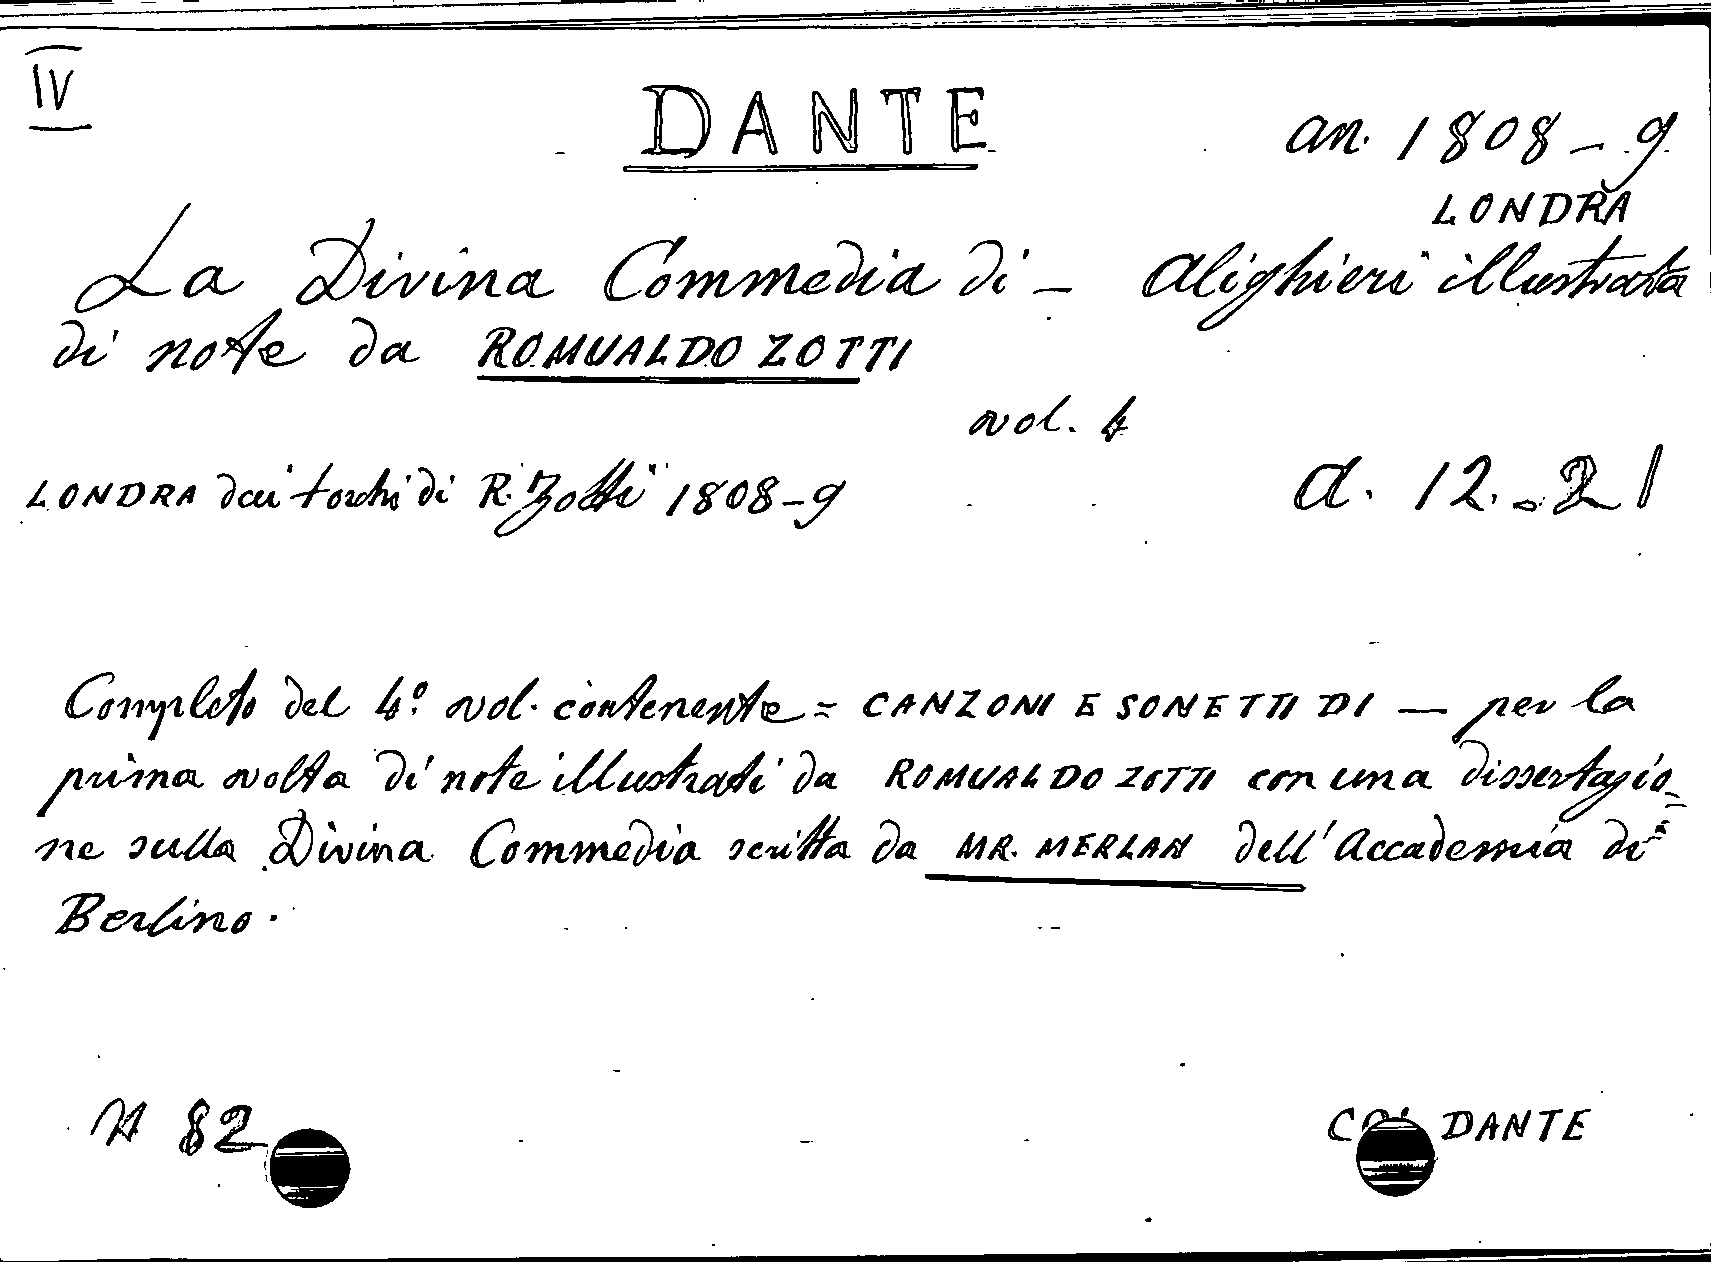 IV
DANTE
an. 1808-9
LONDRA
La Divina Commedia di - Alighieri illustrata
di note da ROMUALDO ZOTTI
vol. 4
LONDRA dai torchi di R. Zotti 1808-9
a. 12. 21
Completo del 4º vol. contenente = CANZONI E SONETTI DI — per la
prima volta di note illustrati da ROMUALDO ZOTTI con una dissertazio-
ne sulla Divina Commedia scritta da MR. MERLAN dell'Accademia di
Berlino.
N 82
DANTE